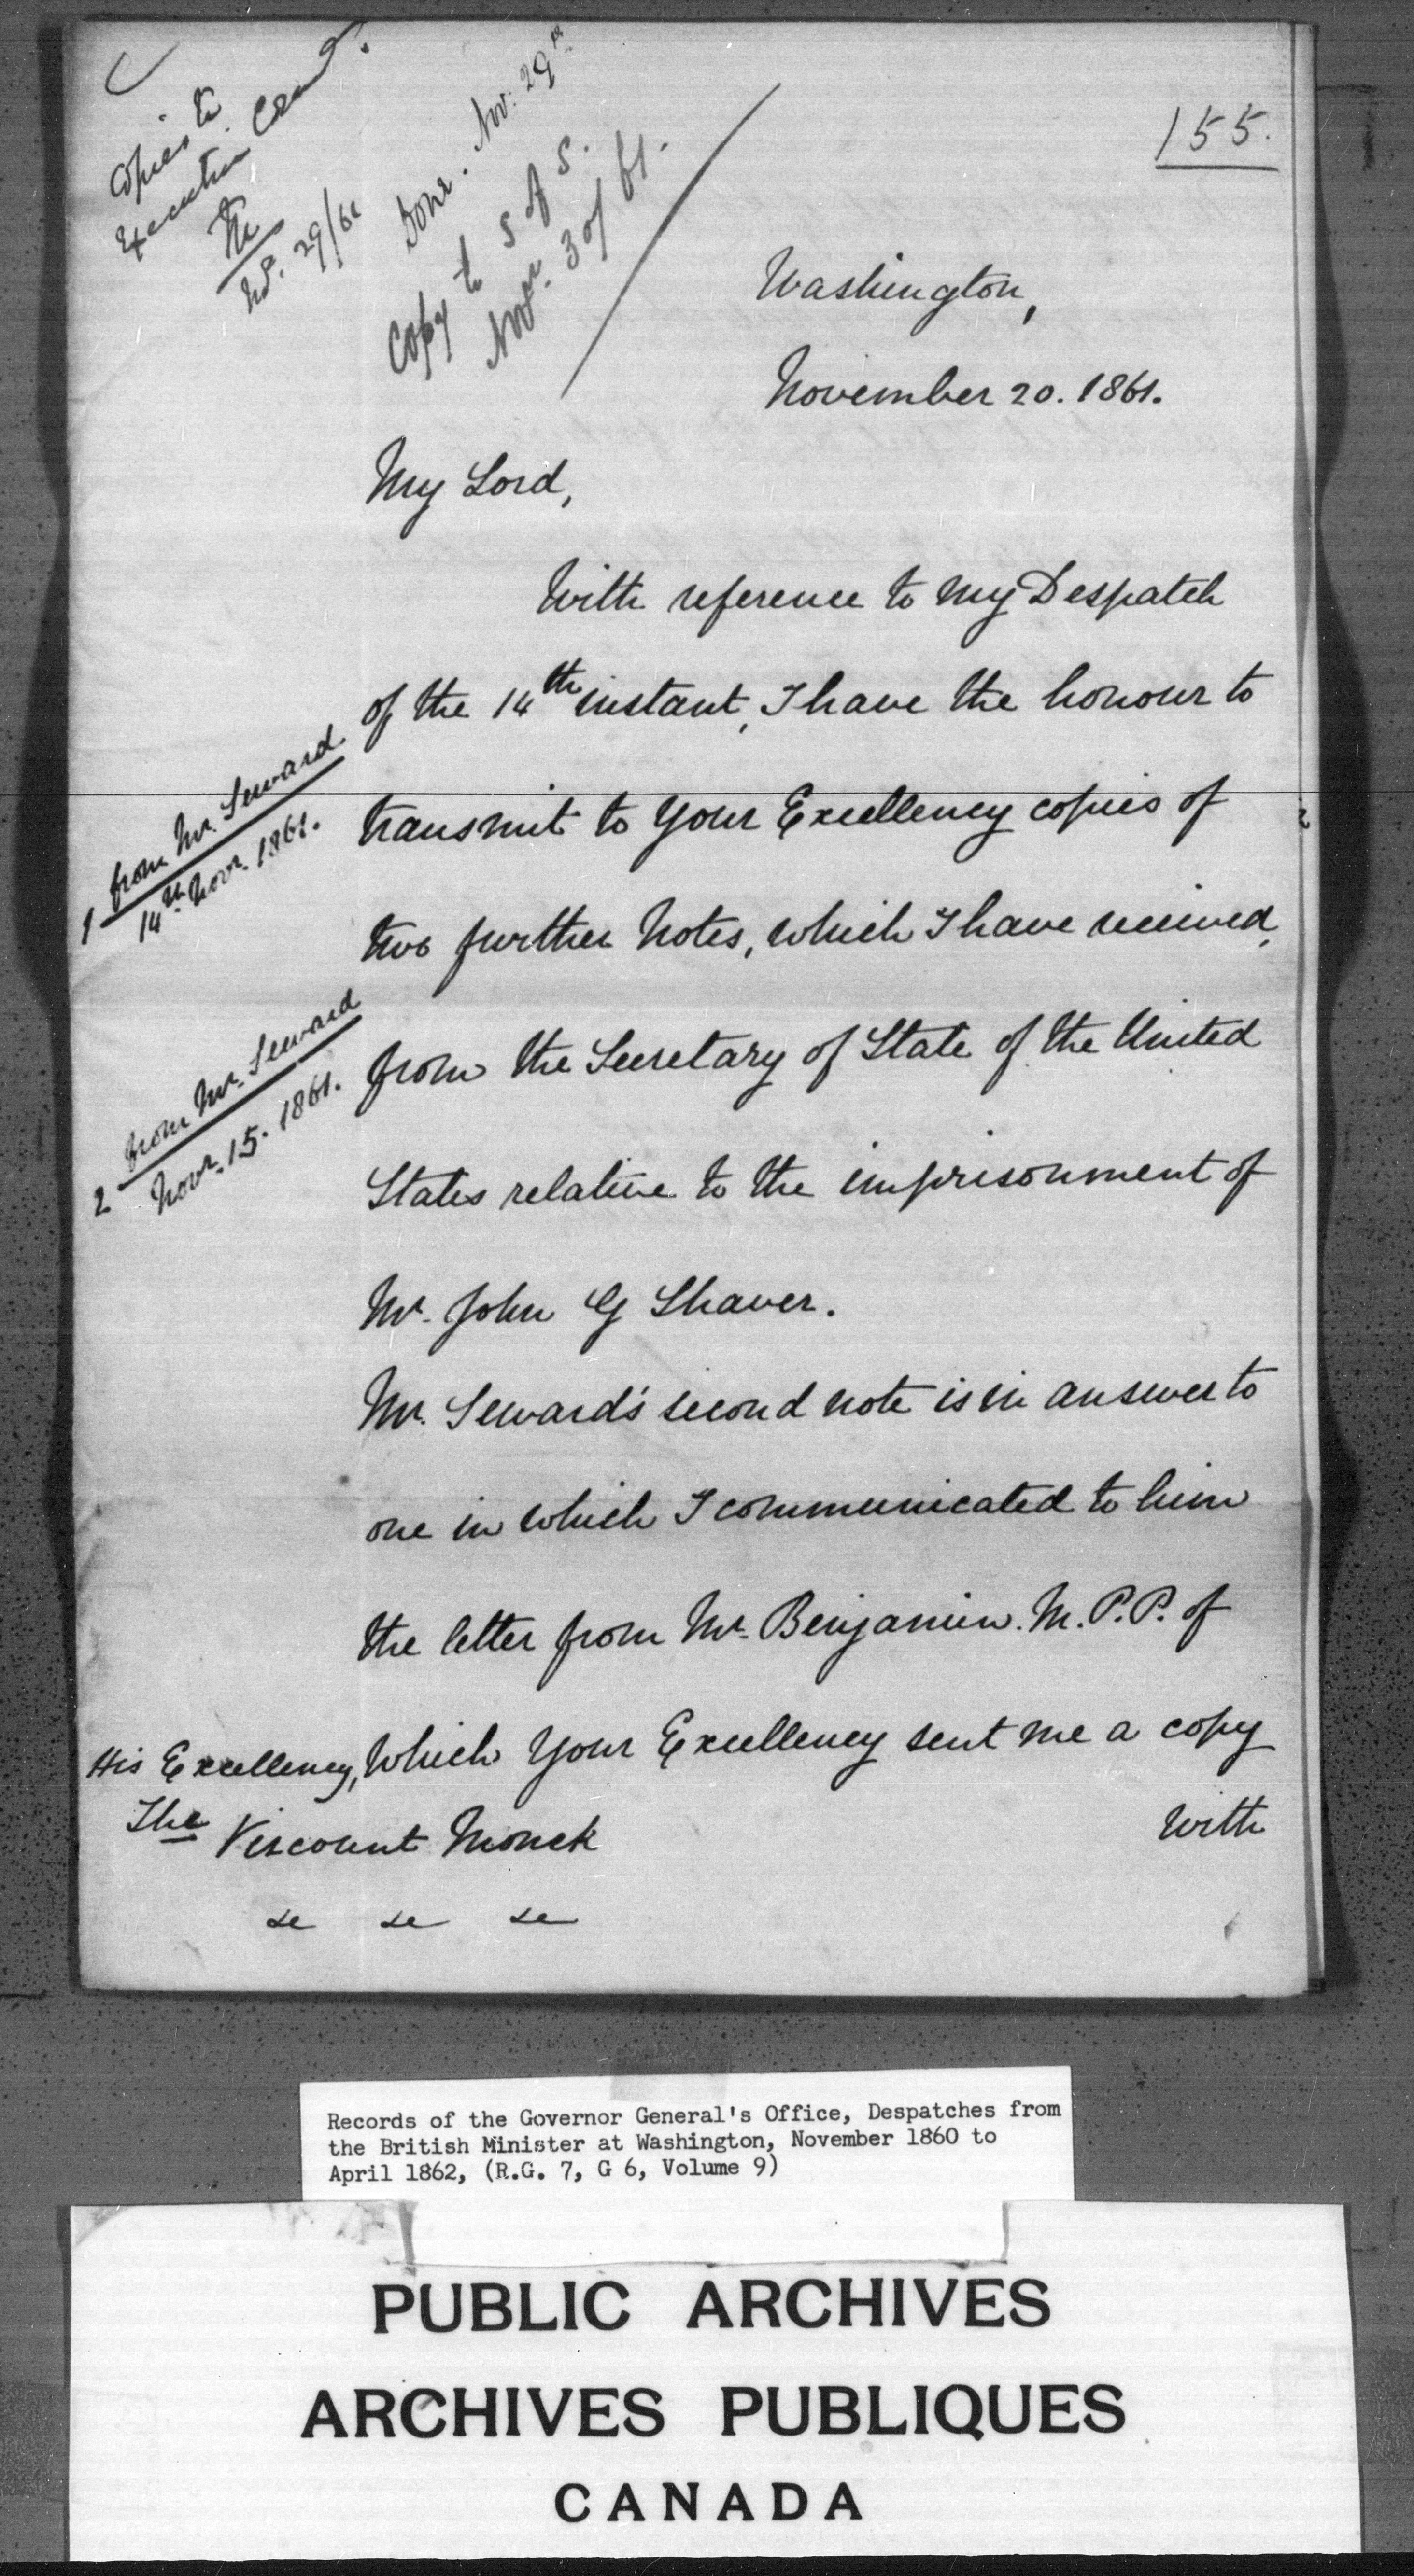 Copies to
Executive
Nov. 29/61
Done. Nov. 29th
Copy to S of S.
Novr. 30/61.
155.
Washington,
November 20. 1861.
My Lord,
With reference to my Despatch
of the 14th instant, I have the honour to
1 from Mr. Seward
14th Novr. 1861.
transmit to Your Excellency copies of
two further Notes, which I have received,
2 from Mr. Seward
Novr. 15. 1861.
from the Secretary of State of the United
States relative to the imprisonment of
Mr. John G Shaver.
Mr. Seward's second note is in answer to
one in which I communicated to him
the letter from Mr. Benjamin. M.P.P. of
which Your Excellency sent me a copy
with
His Excellency,
The Viscount Monck
&c &c &c
Records of the Governor General's Office, Despatches from
the British Minister at Washington, November 1860 to
April 1862, (R.G. 7, G 6, Volume 9)
PUBLIC ARCHIVES
ARCHIVES PUBLIQUES
CANADA